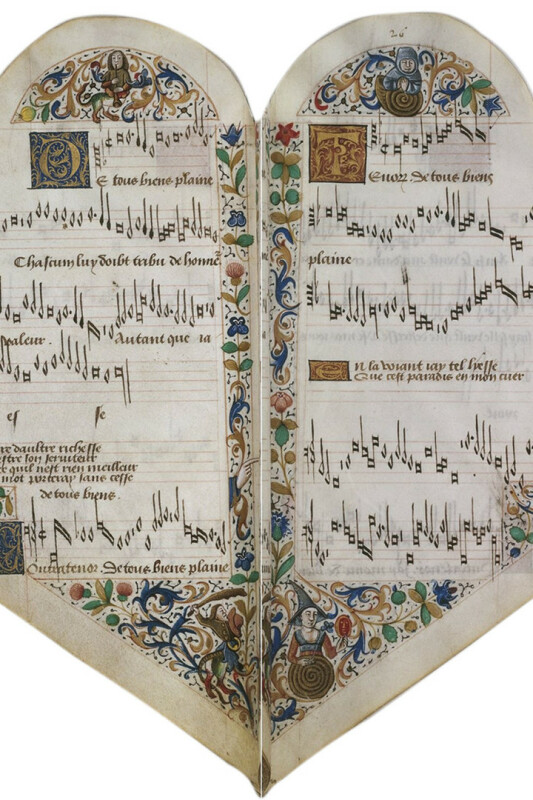 De tous biens plaine
Chascum luy doibt tribu de honne
valeur . Autant que ia
es se
re daultre richesse
stre son seruiteur
quil nest rien meilleur
mot porteray sans cesse
de tous biens .
Contratenor . De tous biens plaine
26
Tenor . De tous biens
plaine
En la voiant iay tel liesse
Que cest paradis en mon cuer